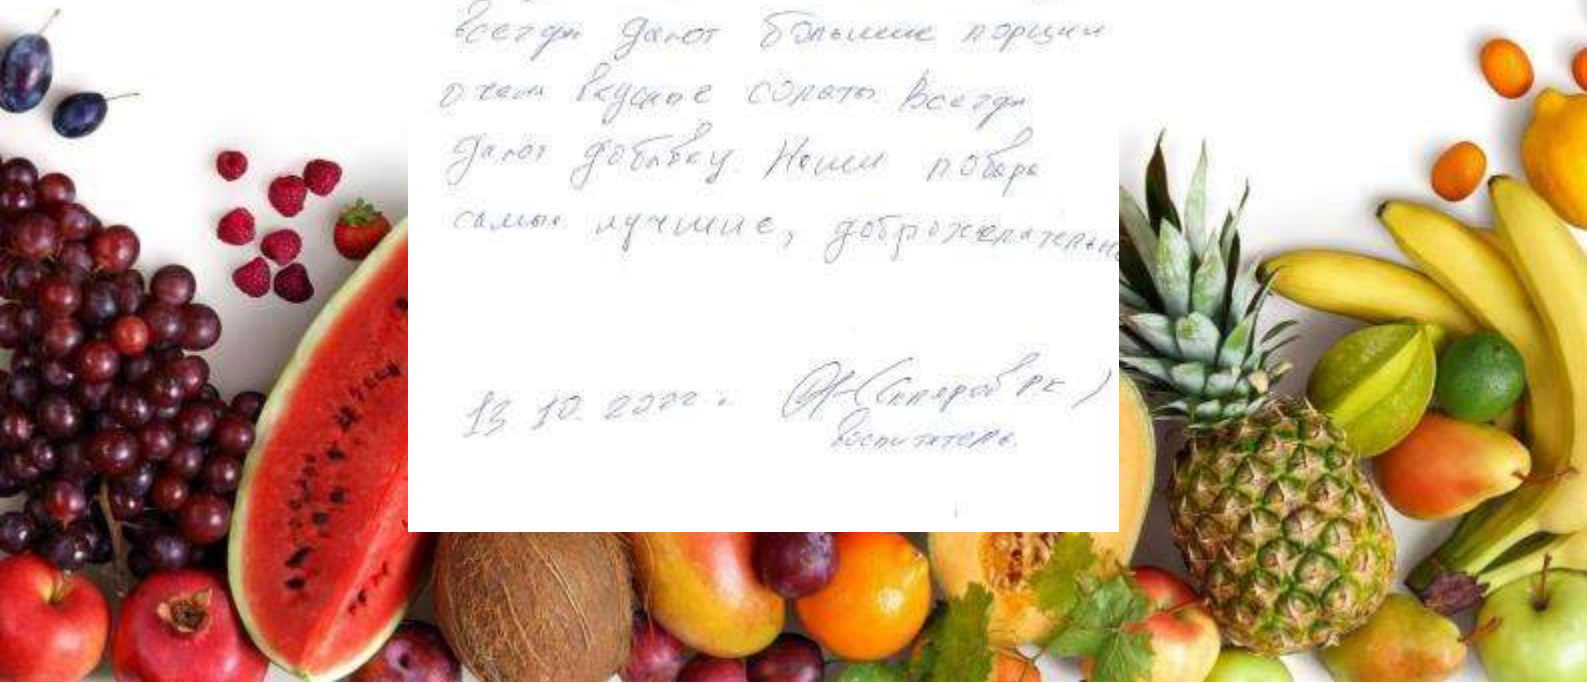 всегда дают большие порции
очень вкусные салаты. Всегда
дают добавку. Наши повара
самые лучшие, доброжелательн
13.10.2022 г.
воспитатель.